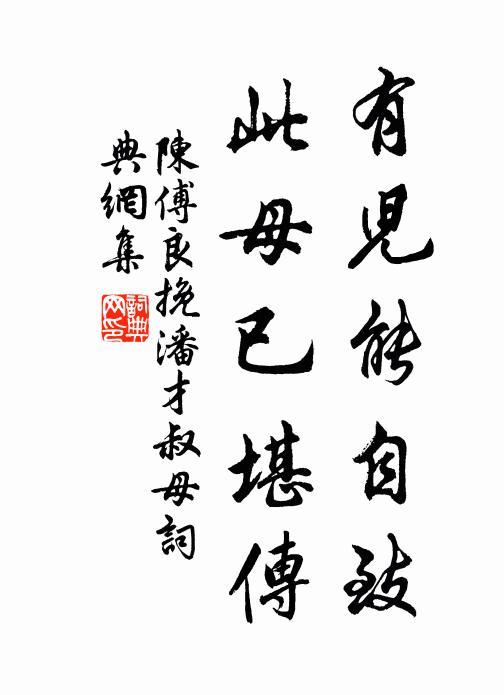 有児能自致
此母已堪傳
陳傅良挽潘才叔母詞
典網集
詞典网印